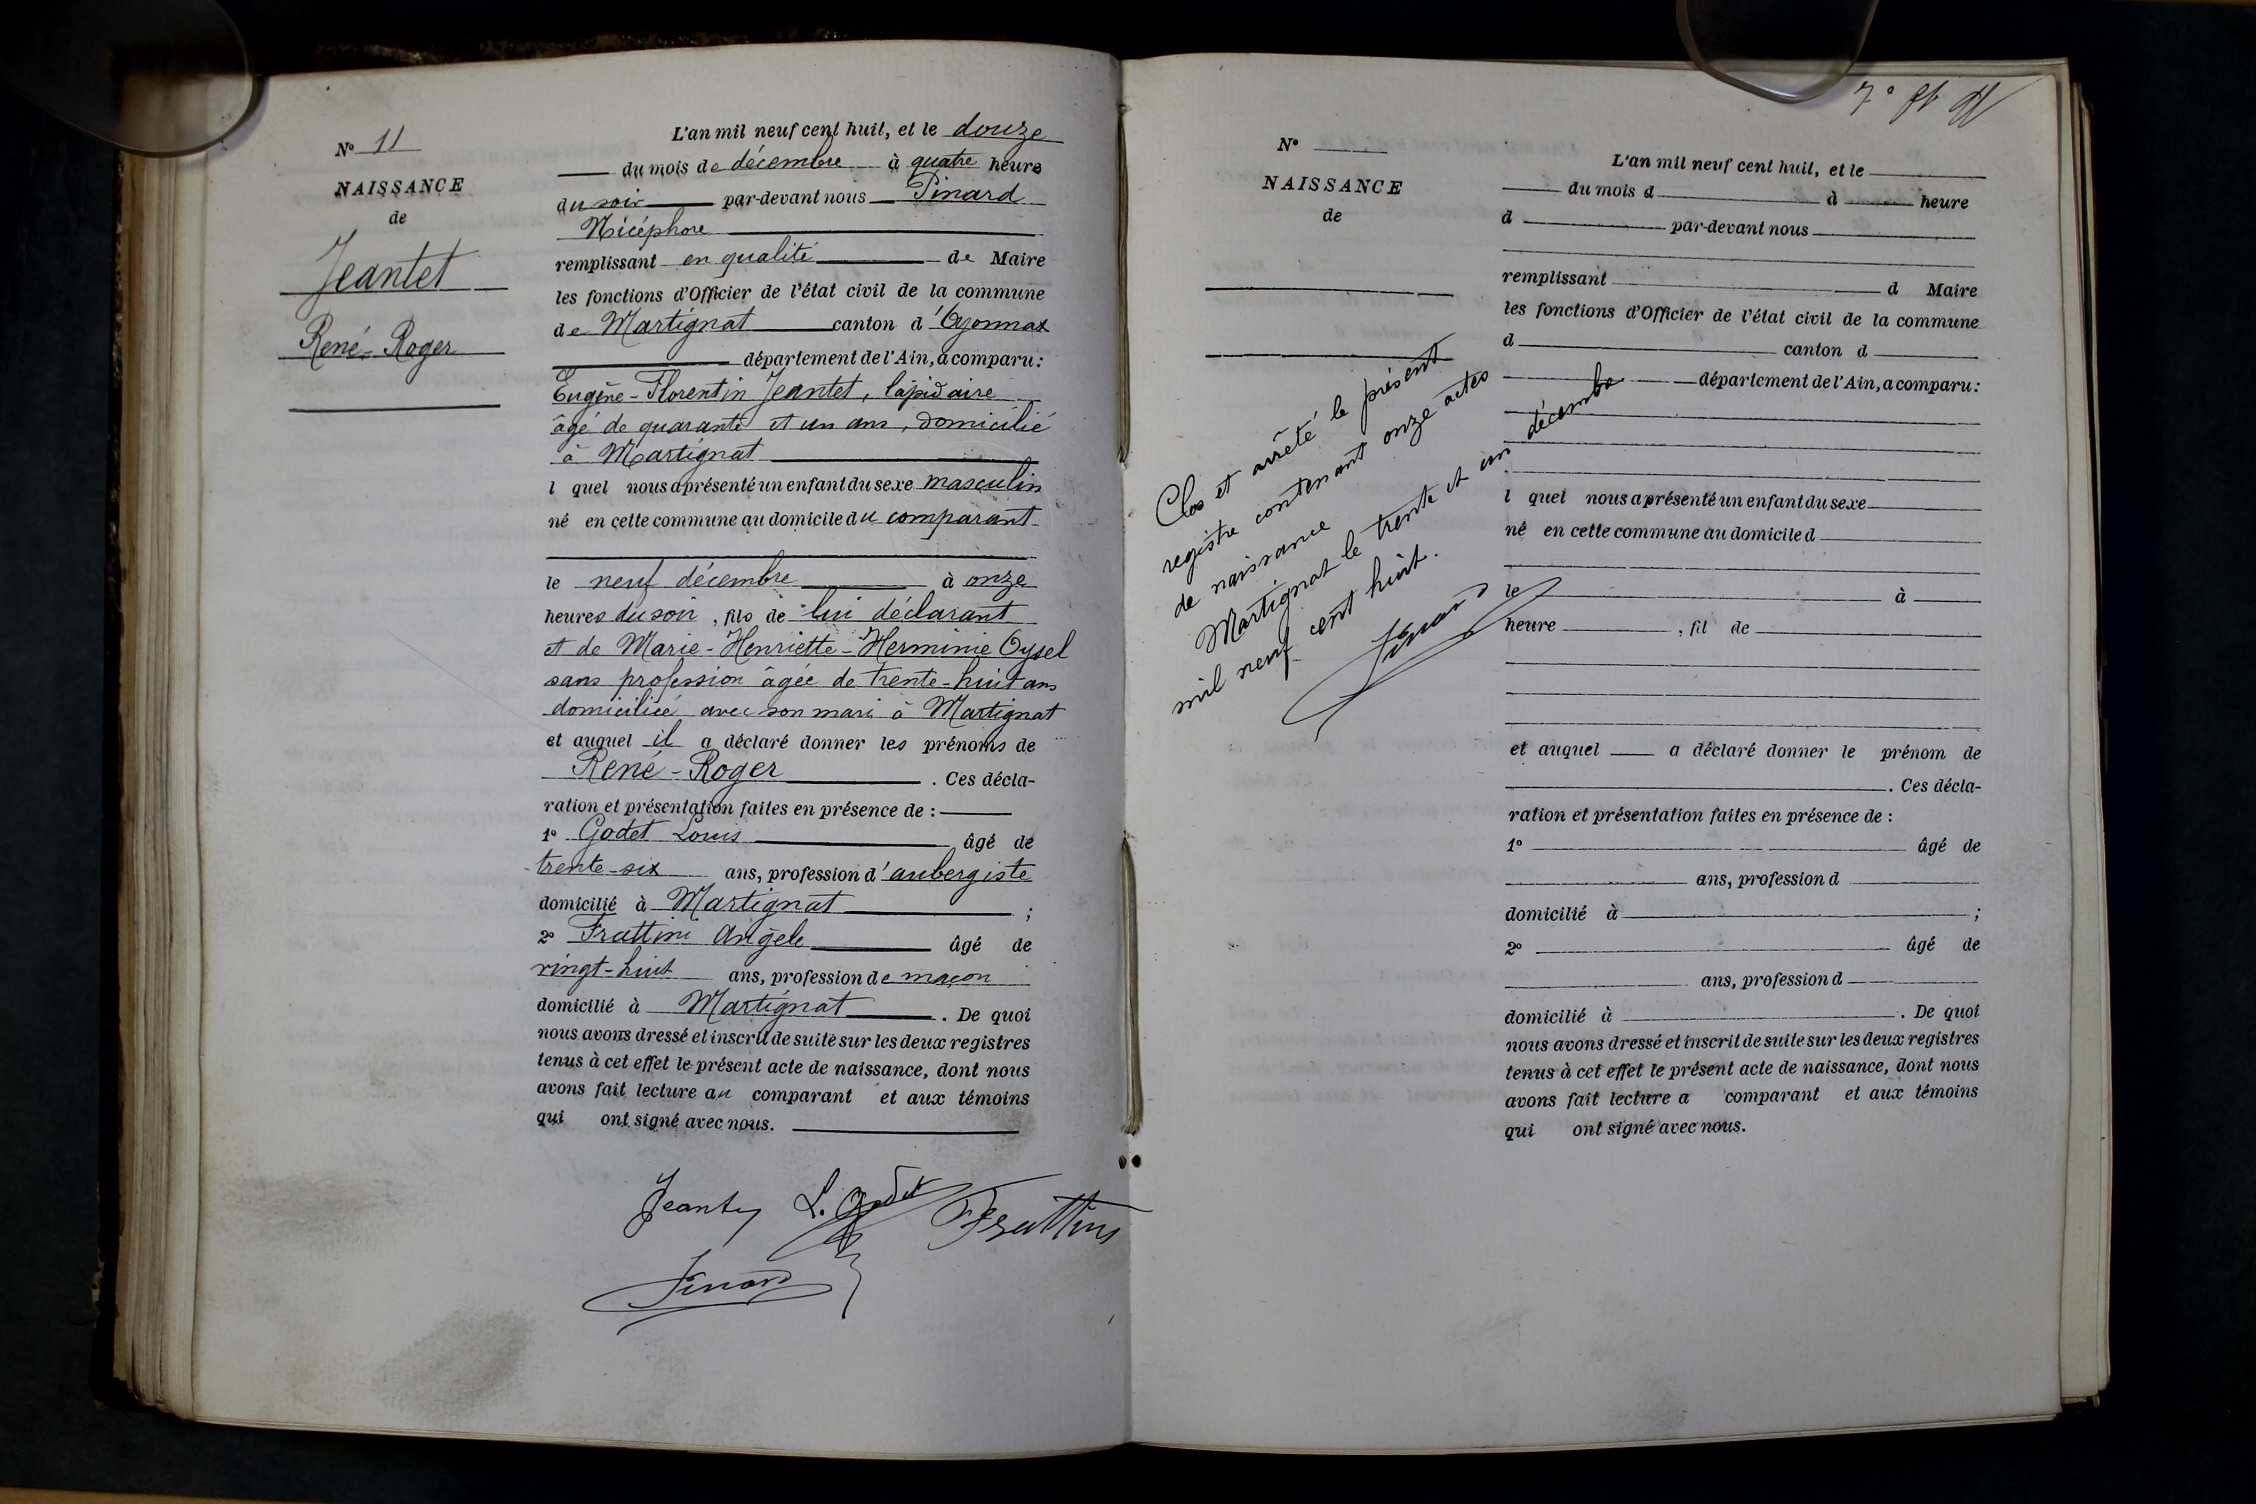 N° 11
NAISSANCE
de
Jeantet
René-Roger
L'an mil neuf cent huit, et le douze
du mois de décembre à quatre heures
du soir par-devant nous Pinard
Nicéphore
remplissant en qualité de Maire
les fonctions d'Officier de l'état civil de la commune
de Martignat canton d'Oyonnax
département de l'Ain, a comparu :
Eugène-Florentin Jeantet, lapidaire
âgé de quarante et un ans, domicilié
à Martignat
l quel nous a présenté un enfant du sexe masculin
né en cette commune au domicile du comparant
le neuf décembre à onze
heures du soir, fils de lui déclarant
et de Marie-Henriette-Herminie Oysel
sans profession âgée de trente-huit ans
domiciliée avec son mari à Martignat
et auquel il a déclaré donner les prénoms de
René-Roger. Ces décla-
ration et présentation faites en présence de :
1° Godet Louis âgé de
trente-six ans, profession d'aubergiste
domicilié à Martignat ;
2° Frattini Angèle âgé de
vingt-huit ans, profession de maçon
domicilié à Martignat. De quoi
nous avons dressé et inscrit de suite sur les deux registres
tenus à cet effet le présent acte de naissance, dont nous
avons fait lecture au comparant et aux témoins
qui ont signé avec nous.
Jeantet L. Godet Frattini
Pinard
N°
NAISSANCE
de
Clos et arrêté le présent
registre contenant onze actes
de naissance
Martignat le trente et un décembre
mil neuf cent huit.
Pinard
L'an mil neuf cent huit, et le
du mois d à heure
d par-devant nous
remplissant d Maire
les fonctions d'Officier de l'état civil de la commune
d canton d
département de l'Ain, a comparu :
l quel nous a présenté un enfant du sexe
né en cette commune au domicile d
le à
heure , fil de
et auquel a déclaré donner le prénom de
. Ces décla-
ration et présentation faites en présence de :
1° âgé de
ans, profession d
domicilié à ;
2° âgé de
ans, profession d
domicilié à . De quoi
nous avons dressé et inscrit de suite sur les deux registres
tenus à cet effet le présent acte de naissance, dont nous
avons fait lecture a comparant et aux témoins
qui ont signé avec nous.